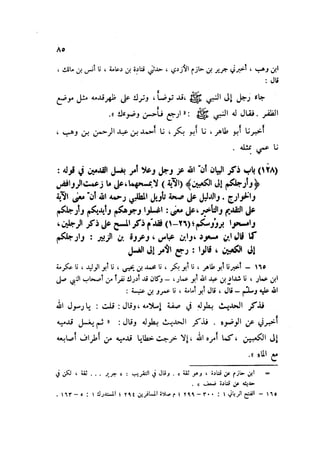 ٨٥
ابن وهب ، أخبرني جرير بن حازم الأزدي ، حدثني قتادة بن دعامة ، نا أنس بن مالك ،
قال :
جاء رجل إلى النبي ﷺ ،قد توضأ ، وترك على ظهر قدمه مثل موضع
الظفر . فقال له النبي ﷺ : « ارجع فأحسن وضوءك » .
أخبرنا أبو طاهر ، نا أبو بكر ، نا أحمد بن عبد الرحمن بن وهب ،
نا عمي بمثله .
(١٢٨) باب ذكر البيان أن الله عز وجل وعلا أمر بغسل القدمين في قوله :
﴿وأرجلكم إلى الكعبين﴾ (الآية) لا بمسحهما ، على ما زعمت الروافض
والخوارج . والدليل على صحة تأويل المطلبي رحمه الله أن معنى الآية
على التقديم والتأخير ، على معنى : اغسلوا وجوهكم وأيديكم وأرجلكم
وامسحوا برؤوسكم؛ (٢٦-١) فقدم ذكر المسح على ذكر الرجلين ،
كما قال ابن مسعود ، وابن عباس ، وعروة بن الزبير : وأرجلكم
إلى الكعبين ، قالوا : رجع الأمر إلى الغسل
١٦٥ - أخبرنا أبو طاهر ، نا أبو بكر ، نا محمد بن يحيى ، نا أبو الوليد ، نا عكرمة
ابن عمار ، نا شداد بن عبد الله أبو عمار ، - وكان قد أدرك نفراً من أصحاب النبي صلى
الله عليه وسلم - قال ، قال أبو أمامة ، نا عمرو بن عبسة :
فذكر الحديث بطوله في صفة إسلامه ، وقال : قلت : يا رسول الله
أخبرني عن الوضوء . فذكر الحديث بطوله وقال : « ثم يغسل قدميه
إلى الكعبين ، كما أمره الله ، إلا خرجت خطايا قدميه من أطراف أصابعه
مع الماء » .
= ابن حازم عن قتادة ، وهو ثقة » . وقال في التقريب : « جرير ... ثقة ، لكن في
حديثه عن قتادة ضعف » .
١٦٥ - الفتح الرباني ١ : ٣٠٠ - ٢٩٩ ؛ م صلاة المسافرين ٢٩٤ ؛ المستدرك ١ : ٥ - ١٦٣ .